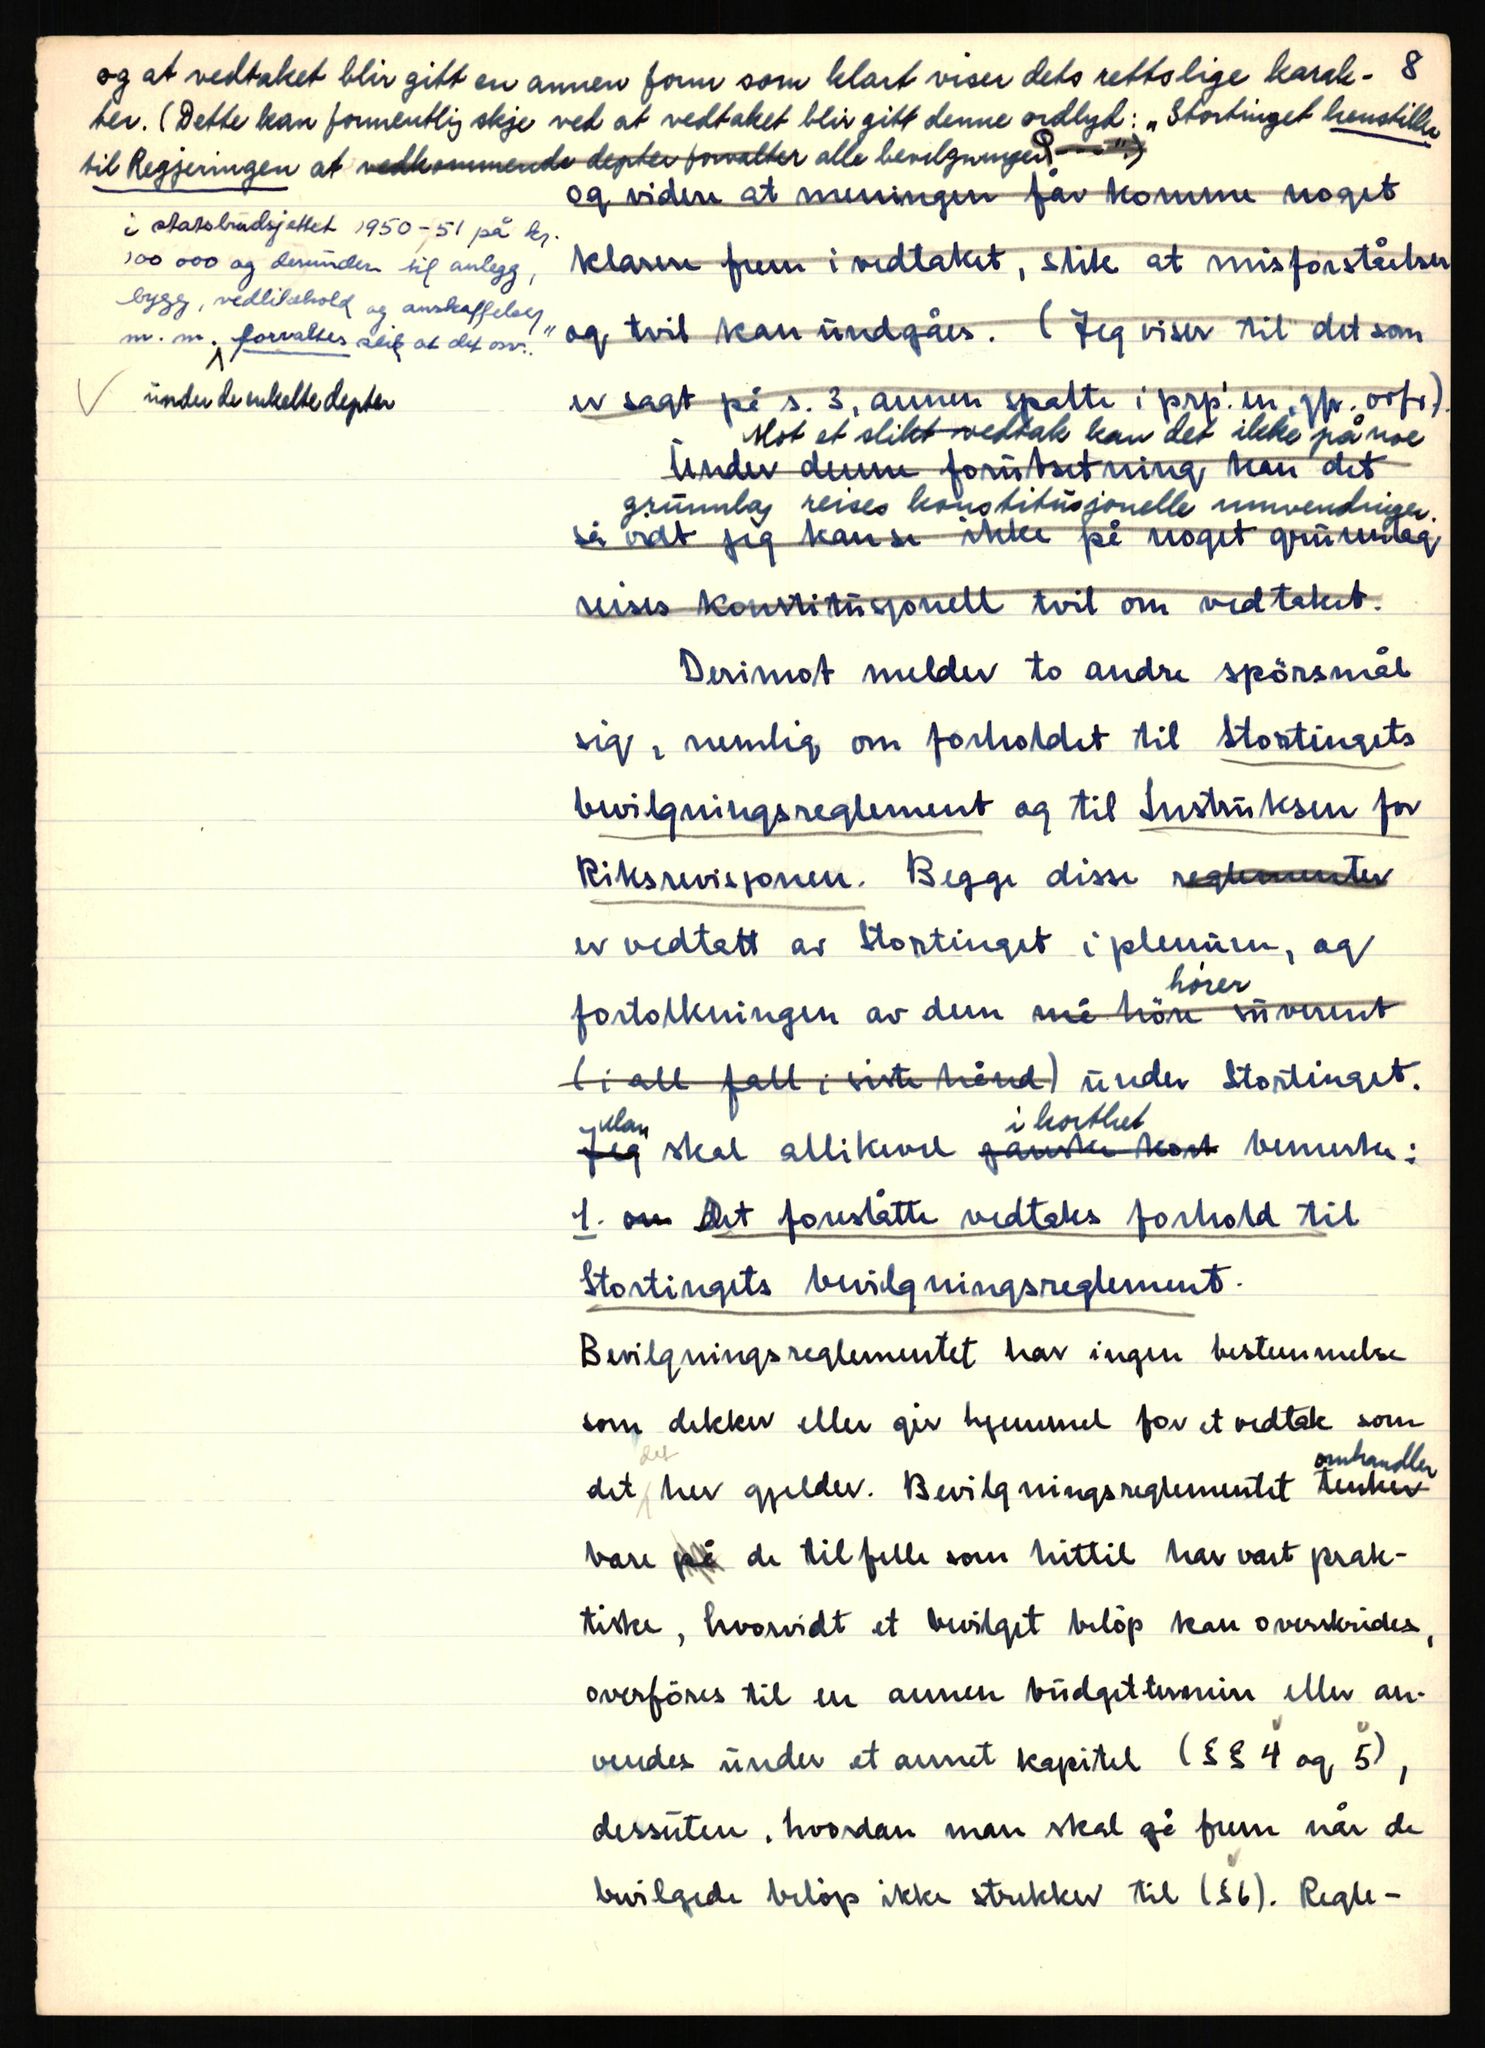 8
og at vedtaket blir gitt en annen form som klart viser dets rettslige karak-
ter. (Dette kan formentlig skje ved at vedtaket blir gitt denne ordlyd: „Stortinget henstiller
til Regjeringen at vedkommende depter forvalter alle bevilgninger ---".)
i statsbudsjettet 1950-51 på kr.
100 000 og derunder til anlegg,
bygg, vedlikehold og anskaffelser
m. m. forvaltes slik at det osv.."
under de enkelte depter
og videre at meningen får komme noget
klarere frem i vedtaket, slik at misforståelser
og tvil kan undgåes. (Jeg viser til det som
er sagt på s. 3, annen spalte i prp'en, jfr. ovfr).
Mot et slikt vedtak kan det ikke på noe
Under denne forutsetning kan det
grunnlag reises konstitusjonelle innvendinger.
så vidt jeg kan se ikke på noget grunnlag
reises konstitusjonell tvil om vedtaket.
Derimot melder to andre spörsmål
sig, nemlig om forholdet til Stortingets
bevilgningsreglement og til Instruksen for
Riksrevisjonen. Begge disse reglementer
er vedtatt av Stortinget i plenum, og
hører
fortolkningen av dem må höre suverent
(i all fall i siste hånd) under Stortinget.
i korthet
Jeg skal allikevel ganske kort bemerke:
1. om Det foreslåtte vedtaks forhold til
Stortingets bevilgningsreglement.
Bevilgningsreglementet har ingen bestemmelse
som dekker eller gir hjemmel for et vedtak som
det omhandler
det her gjelder. Bevilgningsreglementet tenker
bare på de tilfelle som hittil har vært prak-
tiske, hvorvidt et bevilget belöp kan overskrides,
overföres til en annen budgettermin eller an-
vendes under et annet kapitel (§§ 4 og 5),
dessuten, hvordan man skal gå frem når de
bevilgede belöp ikke strekker til (§6). Regle-